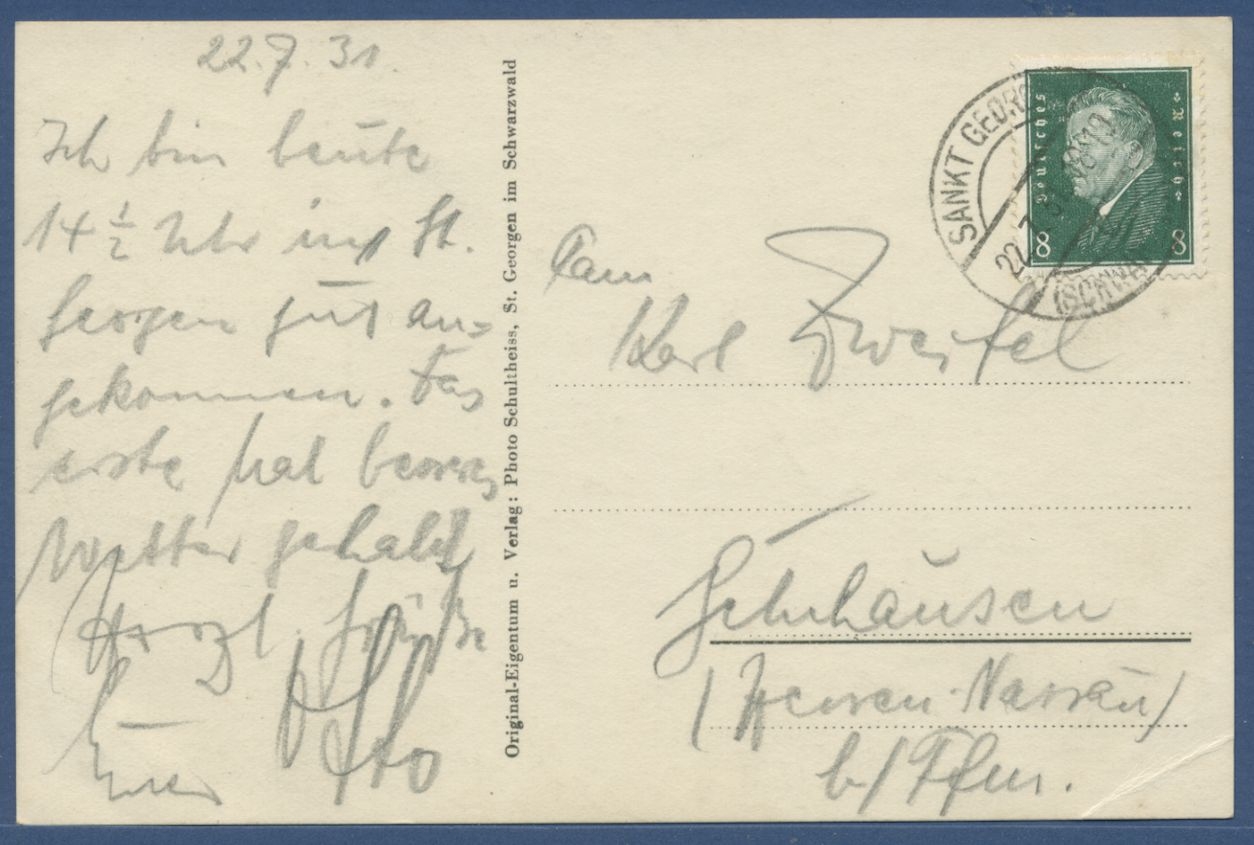 22.7.31.
Ich bin heute
14 1/2 Uhr in St.
Georgen gut an=
gekommen. Das
erste Mal besseres
Wetter gehabt
Herzl. Grüße
Euer Otto
Original-Eigentum u. Verlag: Photo Schultheiss, St. Georgen im Schwarzwald
SANKT GEORG
(SCHWA
22.7.31
Deutsches Reich
8 8
Fam
Karl Zweifel
Gelnhausen
(Hessen-Nassau)
b/Ffm.